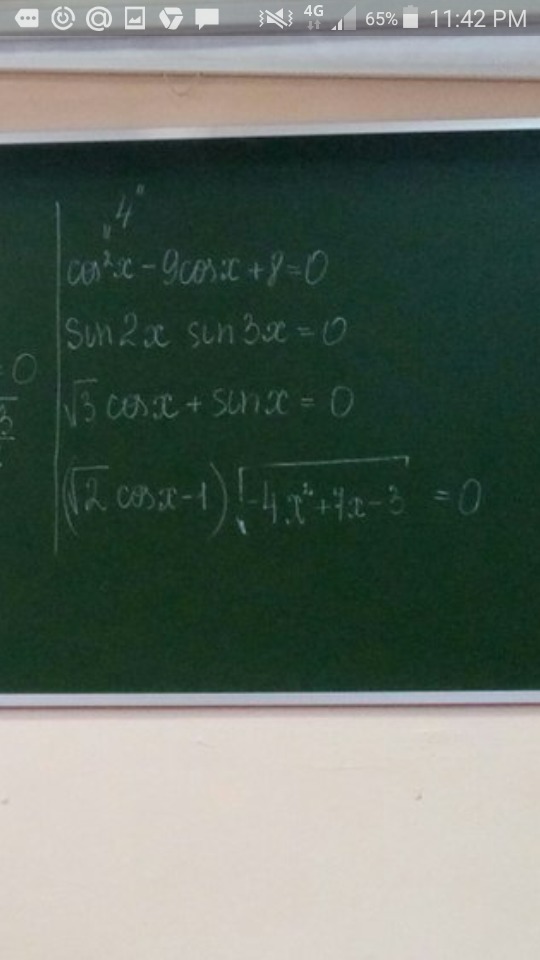 4G 65% 11:42 PM
„4"
cos²x - 9cosx + 8 = 0
sin2x sin3x = 0
√3 cosx + sinx = 0
(√2 cosx - 1) √-4x²+7x-3 = 0
= 0
3